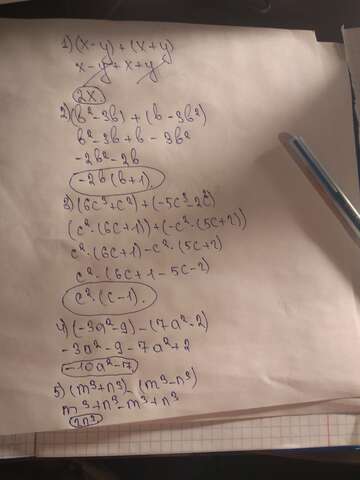 1) (x-y) + (x+y)
x-y+x+y
2x.
2) (b²-3b) + (b-3b²)
b²-3b+b-3b²
-2b²-2b
-2b(b+1).
3) (6c³+c²)+(-5c³-2c²)
(c²·(6c+1))+(-c²·(5c+2))
c²·(6c+1)-c²·(5c+2)
c²·(6c+1-5c-2)
c²·(c-1).
4) (-3a²-9)-(7a²-2)
-3a²-9-7a²+2
-10a²-7
5) (m³+n³)-(m³-n³)
m³+n³-m³+n³
2n³